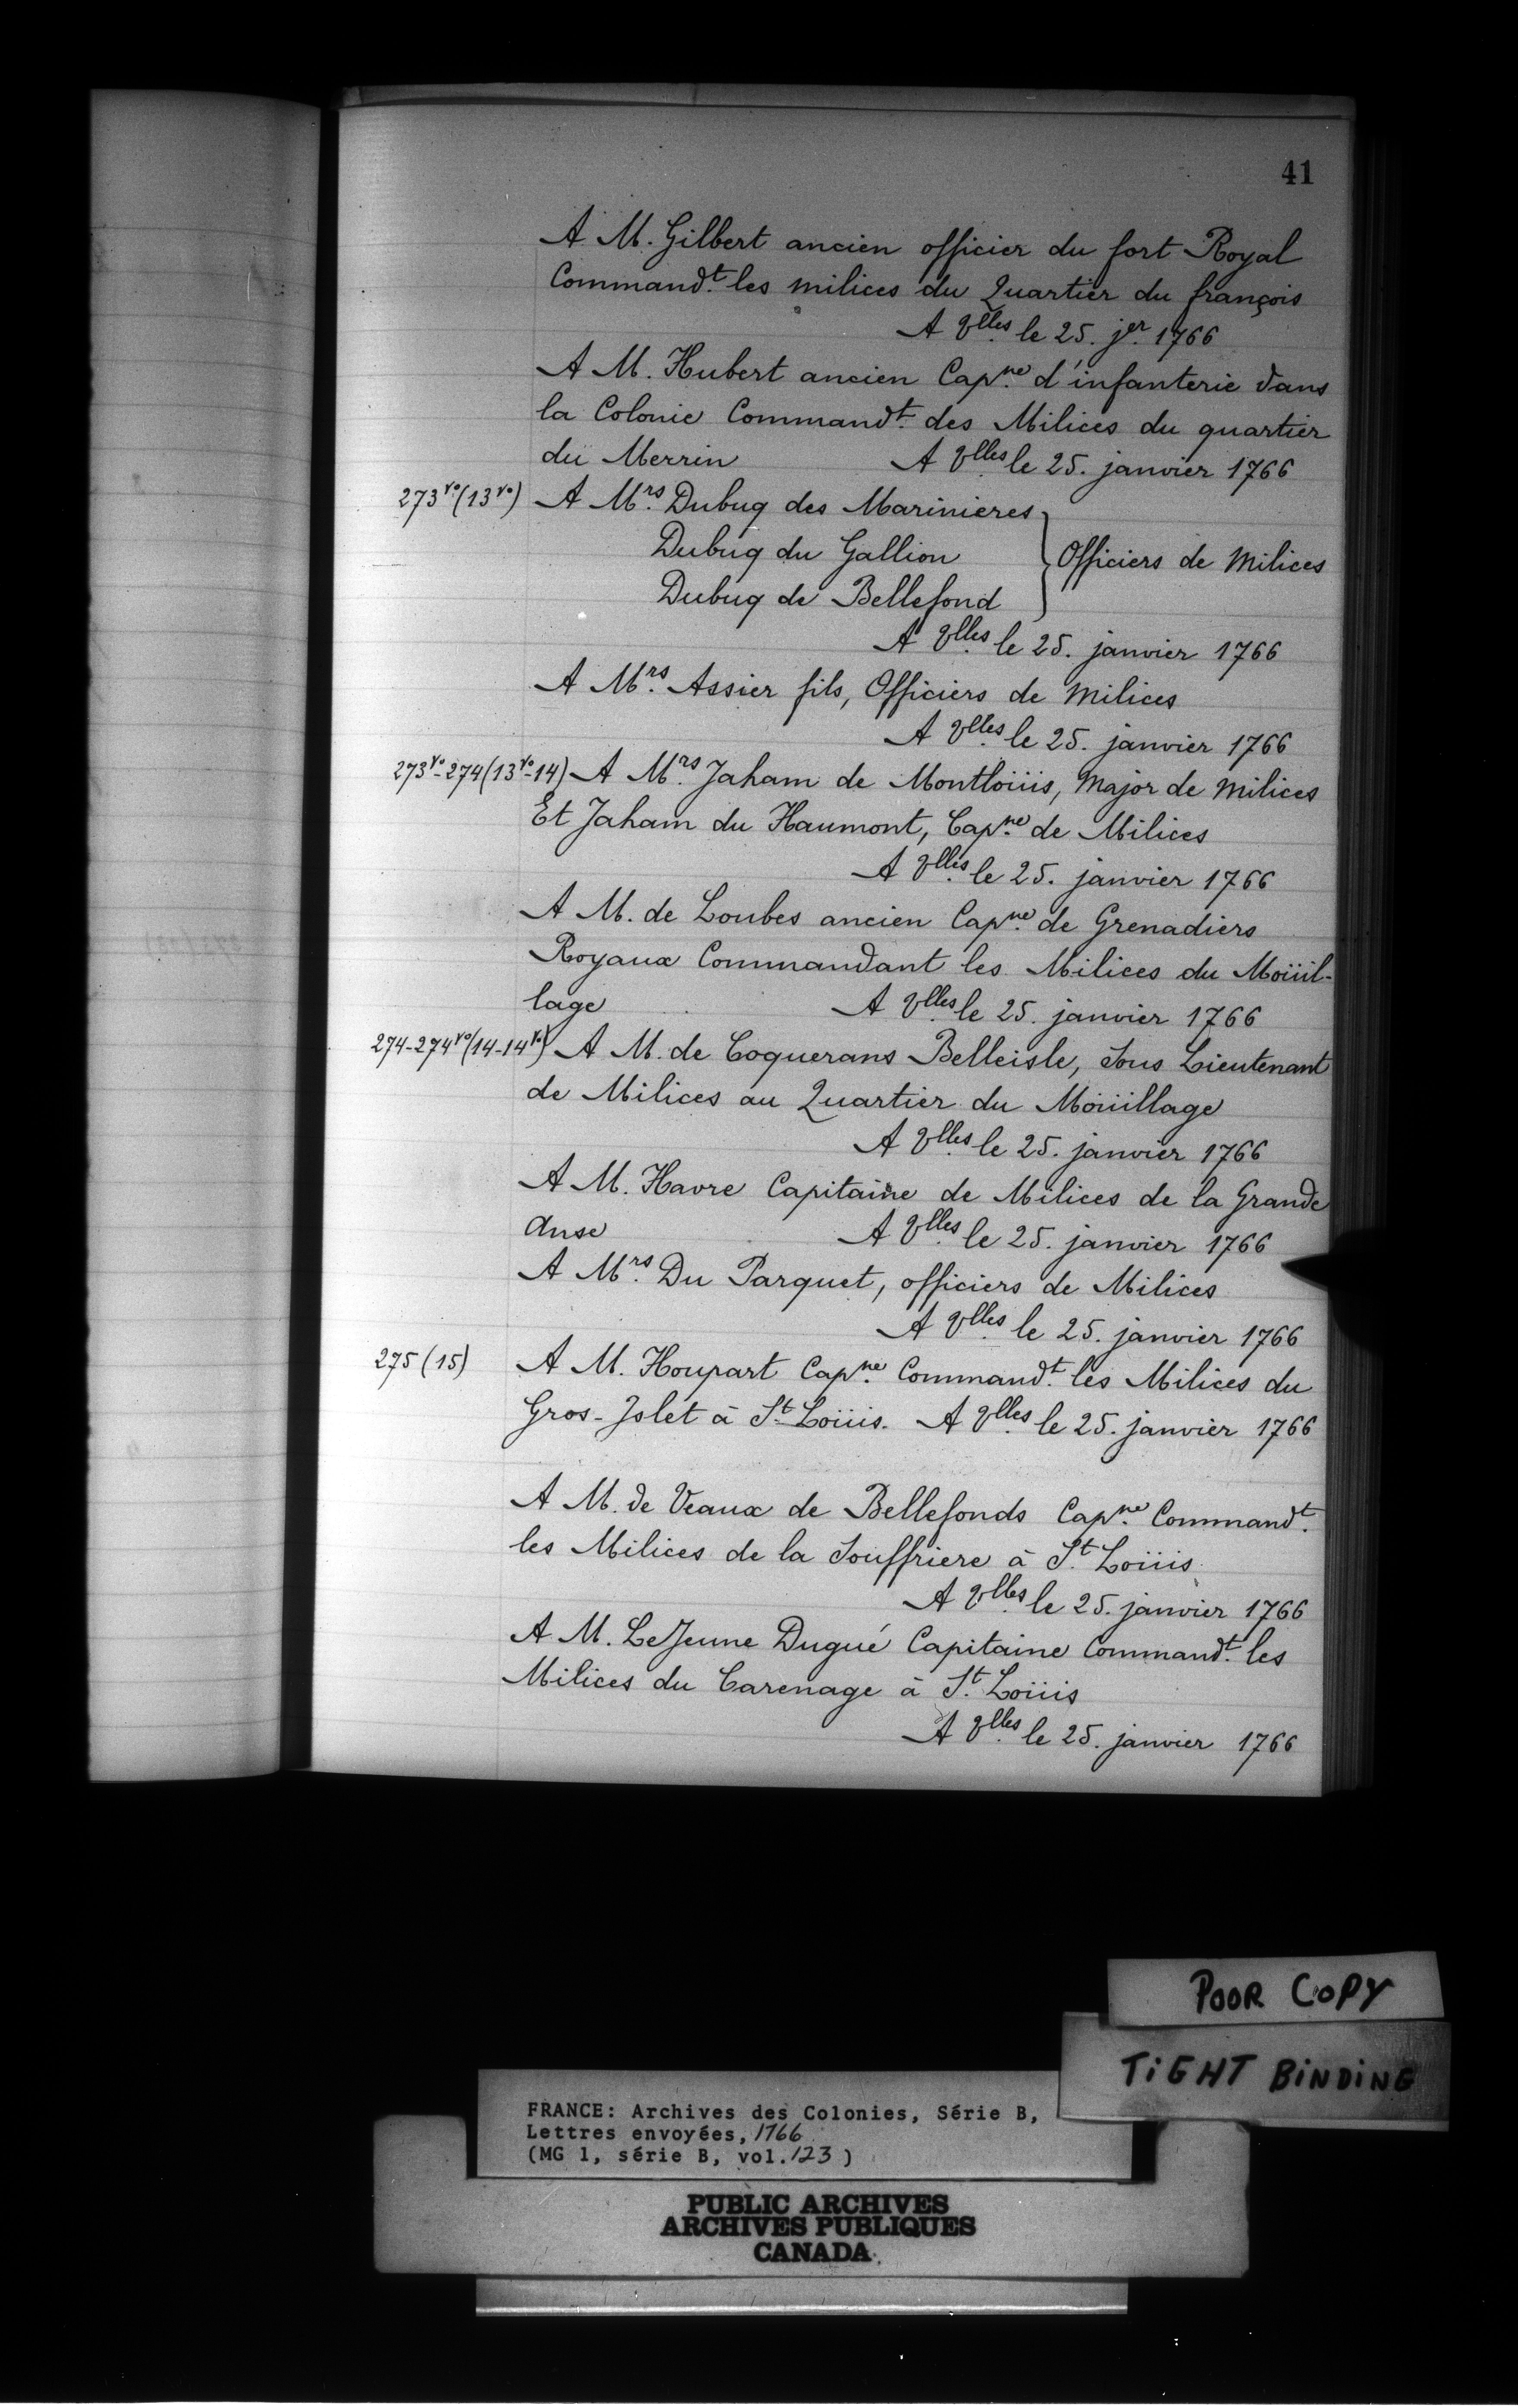 41
A M. Gilbert ancien officier du fort Royal
Command.t les milices du Quartier du françois
A Vlles le 25. jer. 1766
A M. Hubert ancien Capne. d'infanterie dans
la Colonie Command.t des Milices du quartier
du Merrin A Vlles le 25. janvier 1766
273vo (13vo) A Mrs. Dubuq des Marinieres
Dubuq du Gallion } Officiers de Milices
Dubuq de Bellefond
A Vlles le 25. janvier 1766
A Mrs. Assier fils, Officiers de Milices
A Vlles le 25. janvier 1766
273vo-274 (13vo-14) A Mrs. Jaham de Montloüis, Major de Milices
Et Jaham du Haumont, Capne. de Milices
A Vlles le 25. janvier 1766
A M. de Loubes ancien Capne. de Grenadiers
Royaux Commandant les Milices du Moüil-
lage A Vlles le 25. janvier 1766
274-274vo (14-14vo) A M. de Coquerans Belleisle, Sous Lieutenant
de Milices au Quartier du Moüillage
A Vlles le 25. janvier 1766
A M. Havre Capitaine de Milices de la Grande
Anse A Vlles le 25. janvier 1766
A Mrs. Du Parquet, officiers de Milices
A Vlles le 25. janvier 1766
275 (15) A M. Houpart Capne. Command.t les Milices du
Gros-Islet à St. Loüis. A Vlles le 25. janvier 1766
A M. de Veaux de Bellefonds Capne. Command.t
les Milices de la Souffriere à St. Loüis
A Vlles le 25. janvier 1766
A M. LeJeune Dugué Capitaine Command.t les
Milices du Carenage à St. Loüis
A Vlles le 25. janvier 1766
POOR COPY
TIGHT BINDING
FRANCE: Archives des Colonies, Série B,
Lettres envoyées, 1766
(MG 1, série B, vol. 123)
PUBLIC ARCHIVES
ARCHIVES PUBLIQUES
CANADA